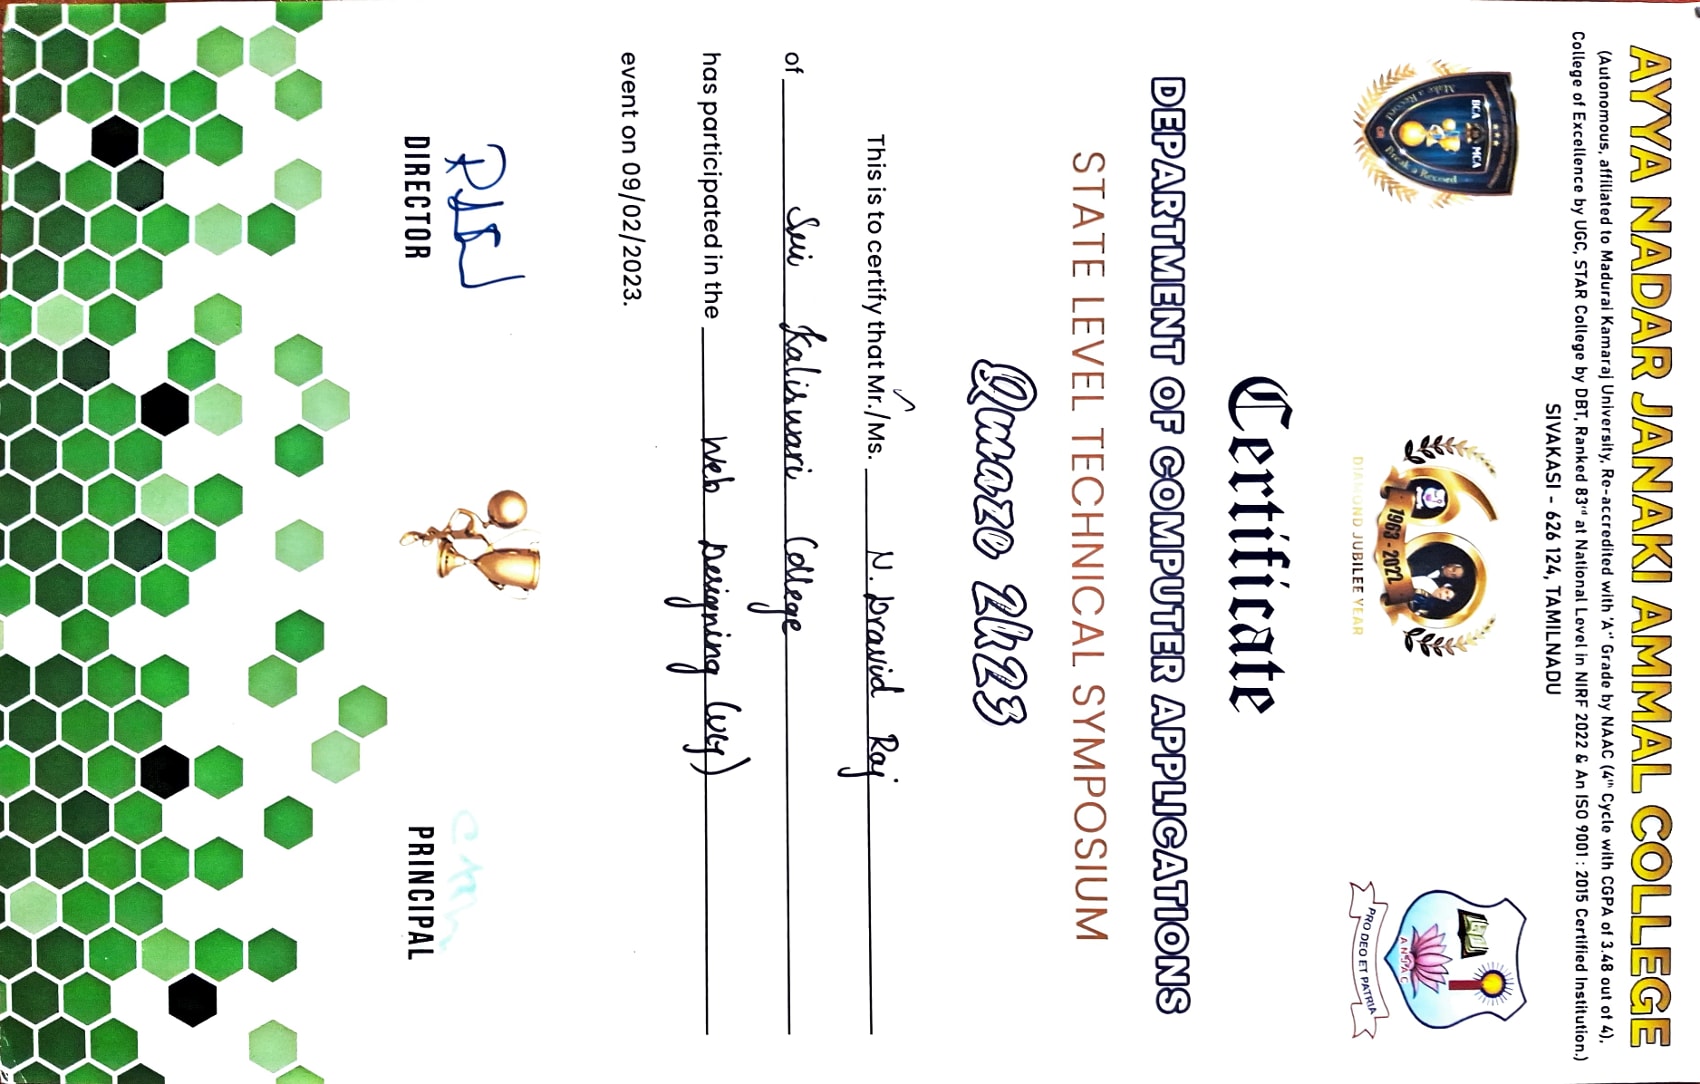 AYYA NADAR JANAKI AMMAL COLLEGE
(Autonomous, affiliated to Madurai Kamaraj University, Re-accredited with 'A+' Grade by NAAC (4th Cycle with CGPA of 3.48 out of 4),
College of Excellence by UGC, STAR College by DBT, Ranked 83rd at National Level in NIRF 2022 & An ISO 9001 : 2015 Certified Institution.)
SIVAKASI - 626 124, TAMILNADU
DEPARTMENT OF COMPUTER APPLICATIONS
BCA MCA
Make a Record OR Break a Record
60
1963 - 2022
DIAMOND JUBILEE YEAR
ANJAC
PRO DEO ET PATRIA
Certificate
DEPARTMENT OF COMPUTER APPLICATIONS
STATE LEVEL TECHNICAL SYMPOSIUM
Qmaze 2k23
This is to certify that Mr./Ms. N. Dravid Raj
of Sri Kaliswari College
has participated in the Web Designing (UG)
event on 09/02/2023.
DIRECTOR
PRINCIPAL